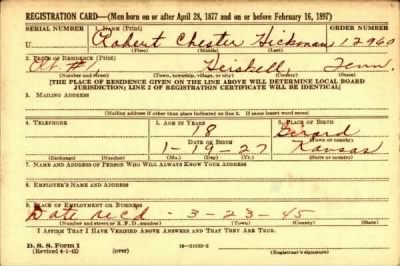 REGISTRATION CARD—(Men born on or after April 28, 1877 and on or before February 16, 1897)
SERIAL NUMBER 1. Name (Print) ORDER NUMBER
U Robert Chester Hickman 12960
(First) (Middle) (Last)
2. Place of Residence (Print)
Rt. #1 Heiskell, Tenn.
(Number and street) (Town, township, village, or city) (County) (State)
[THE PLACE OF RESIDENCE GIVEN ON THE LINE ABOVE WILL DETERMINE LOCAL BOARD
JURISDICTION; LINE 2 OF REGISTRATION CERTIFICATE WILL BE IDENTICAL]
3. Mailing Address
[Mailing address if other than place indicated on line 2. If same insert word same]
4. Telephone 5. Age in Years 6. Place of Birth
18 Girard
Date of Birth (Town or county)
1-19-27 Kansas
(Exchange) (Number) (Mo.) (Day) (Yr.) (State or country)
7. Name and Address of Person Who Will Always Know Your Address
8. Employer's Name and Address
9. Place of Employment or Business
Date rec'd - 3-23-45
(Number and street or R. F. D. number) (Town) (County) (State)
I Affirm That I Have Verified Above Answers and That They Are True.
D. S. S. Form 1
(Revised 4-1-42) (over) 16—21630-2 (Registrant's signature)